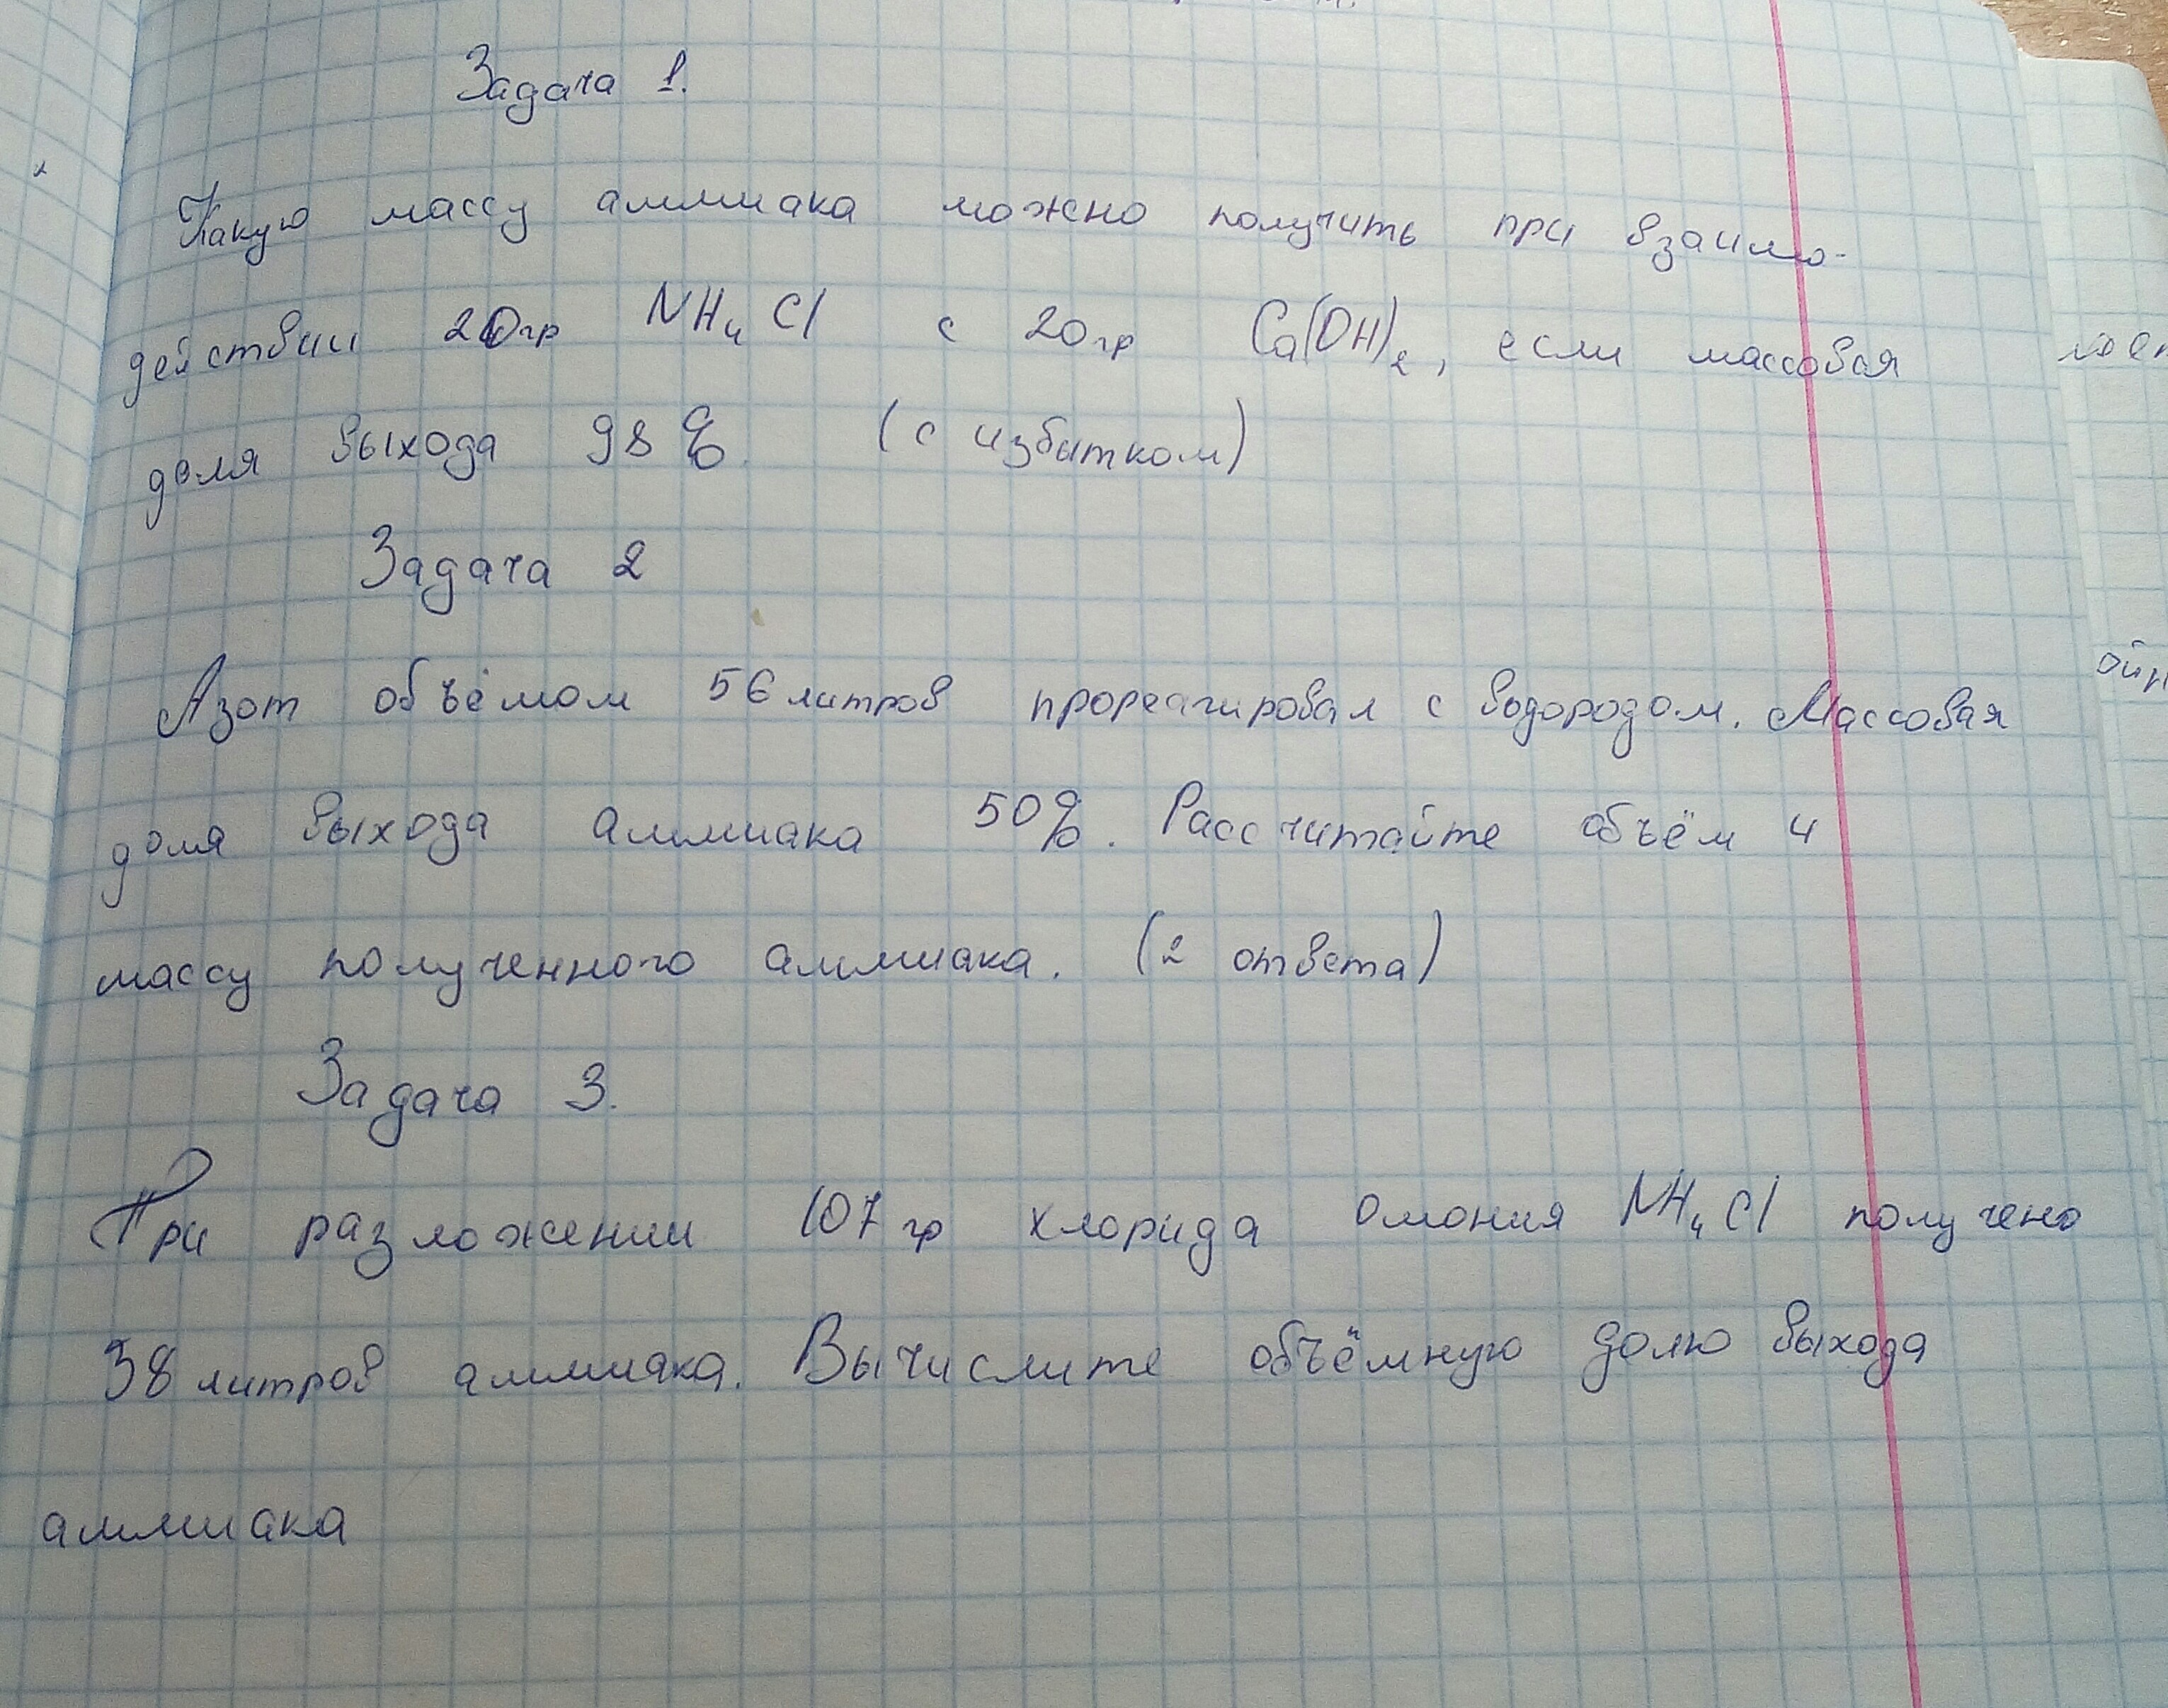 Задача 1.
Какую массу аммиака можно получить при взаимо-
действии 20гр NH₄Cl с 20гр Ca(OH)₂, если массовая
доля выхода 98%. (с избытком)
Задача 2
Азот объёмом 56 литров прореагировал с водородом. Массовая
доля выхода аммиака 50%. Рассчитайте объём и
массу полученного аммиака. (2 ответа)
Задача 3.
При разложении 107 гр хлорида омония NH₄Cl получено
38 литров аммиака. Вычислите объёмную долю выхода
аммиака